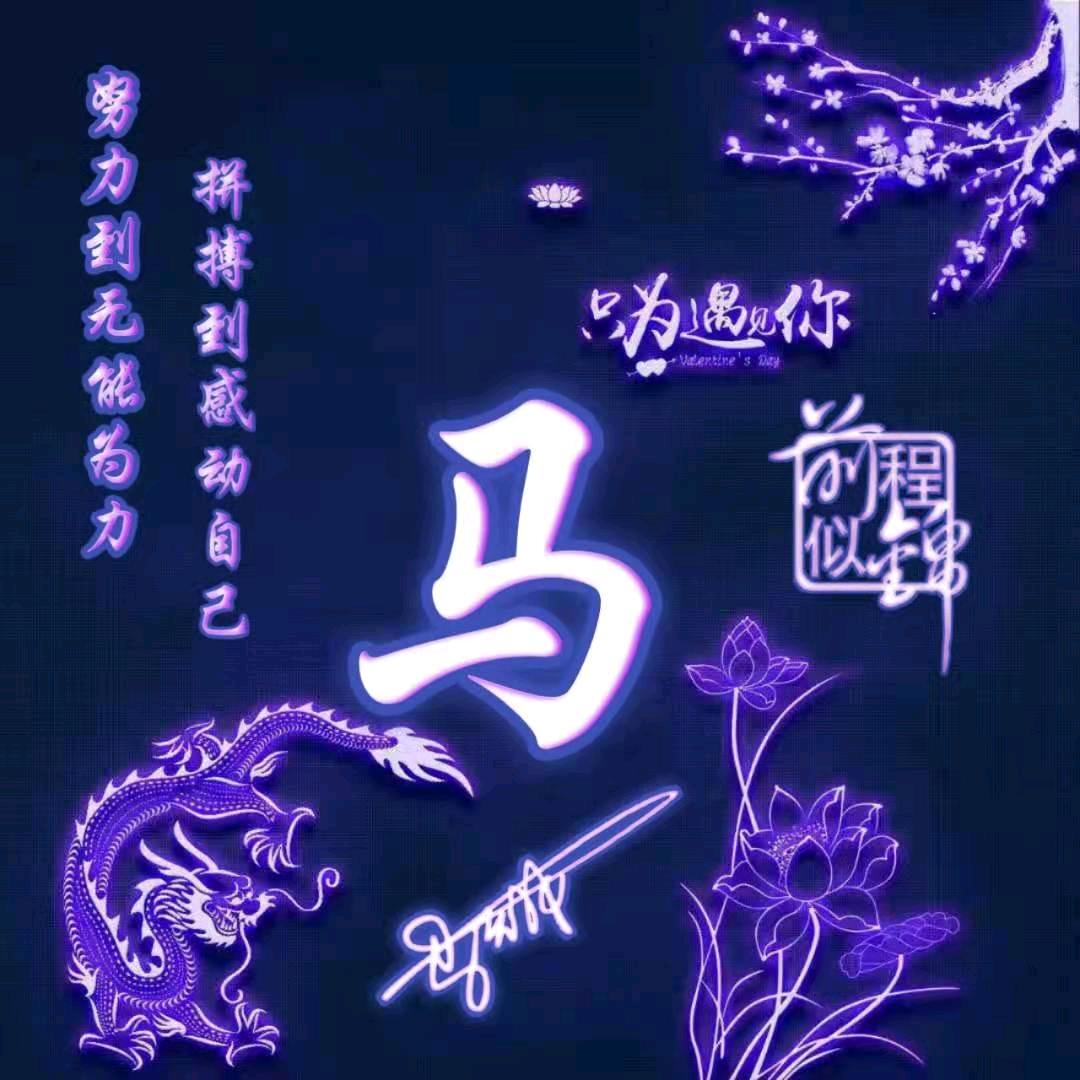 努力到无能为力
拼搏到感动自己
只为遇见你
Valentine's Day
马
前程
似錦